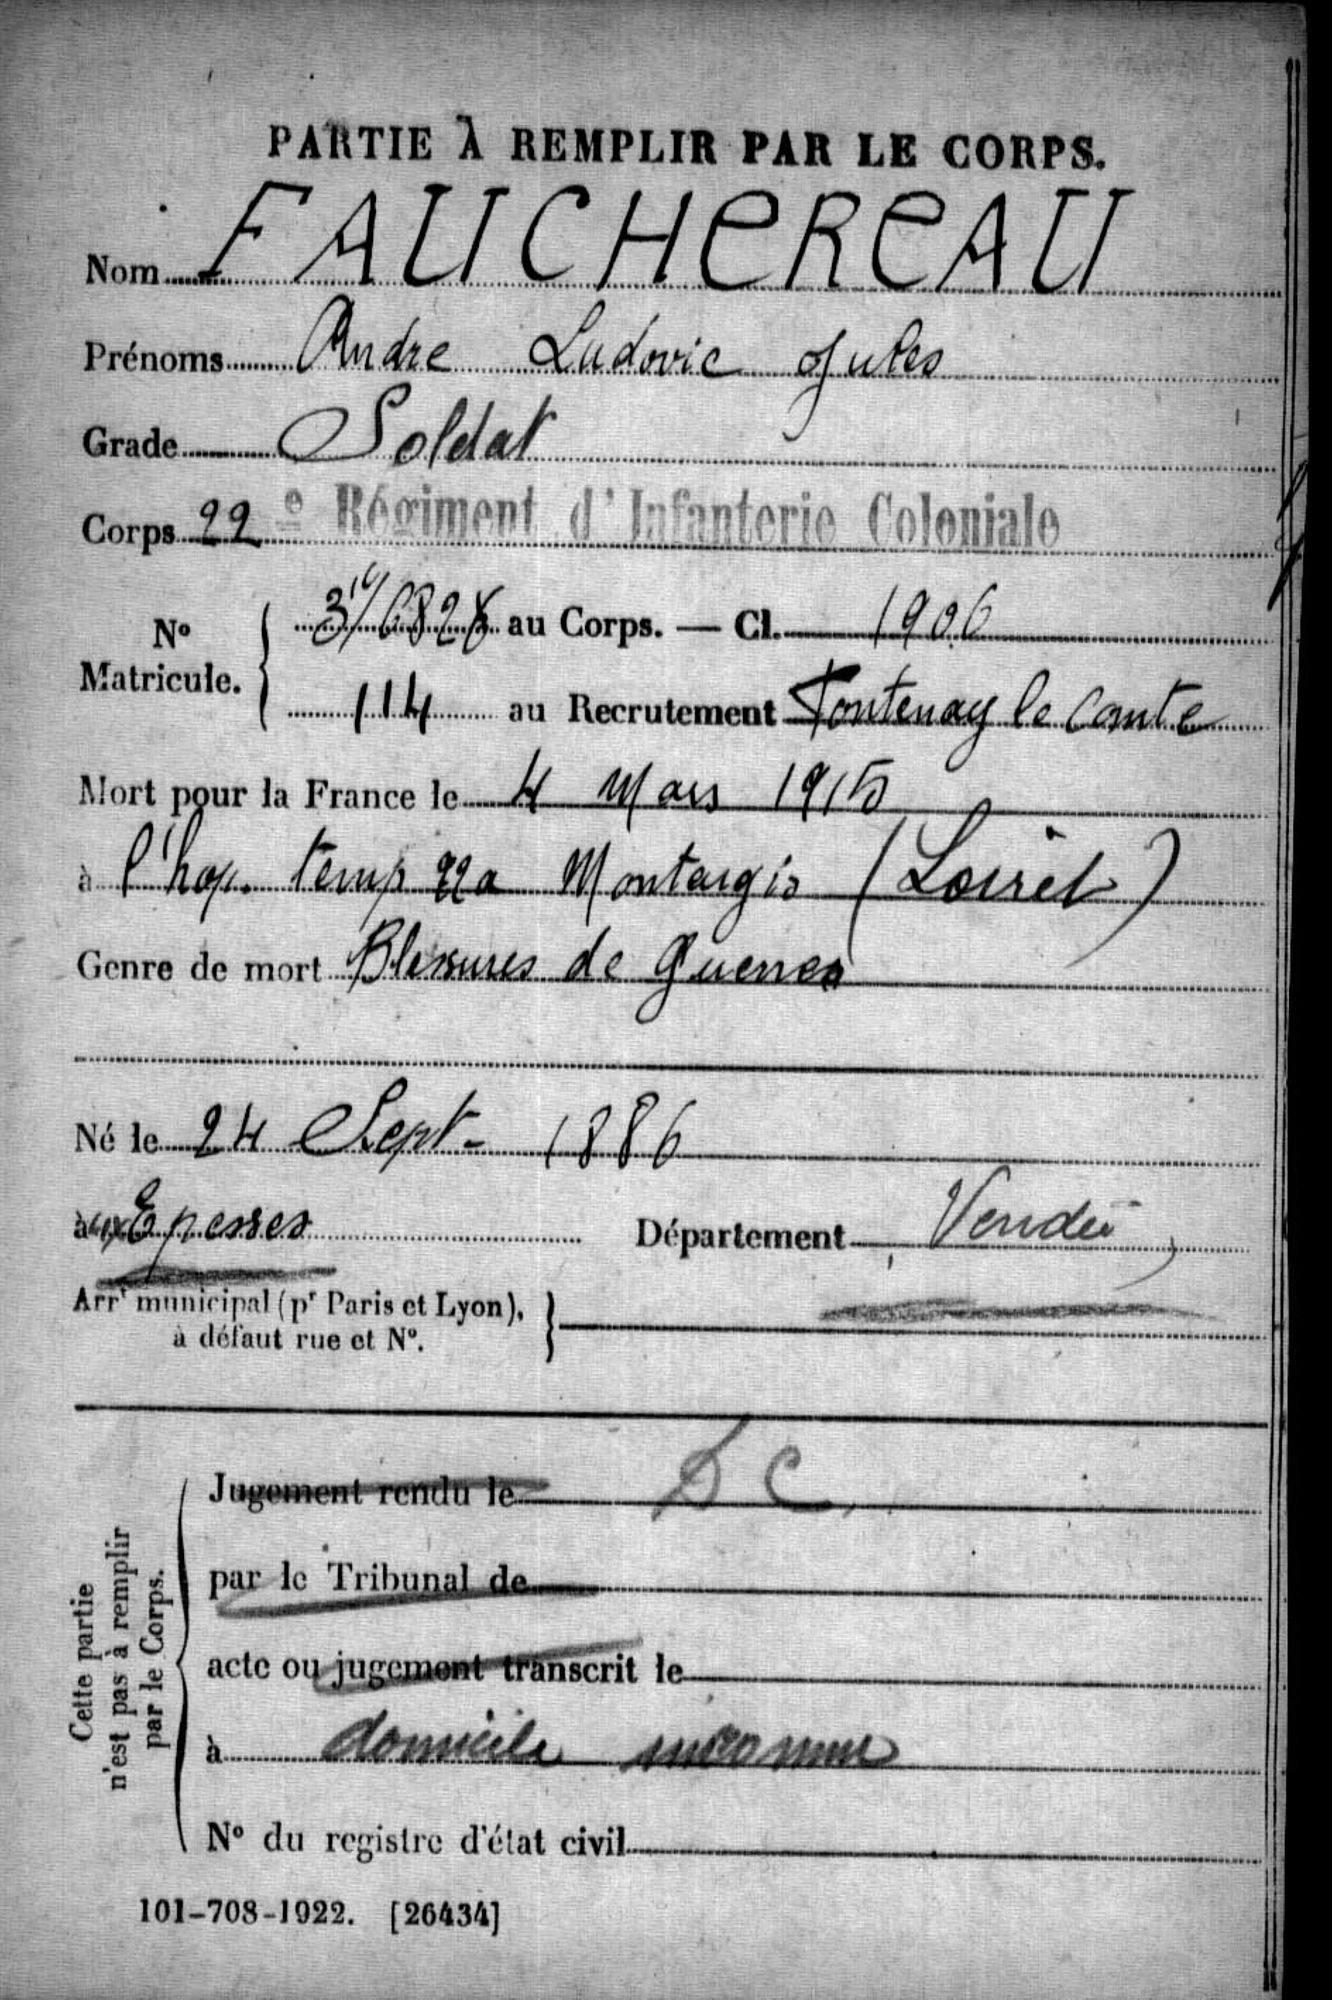 PARTIE À REMPLIR PAR LE CORPS.
Nom FAUCHEREAU
Prénoms Andre Ludovic Jules
Grade Soldat
Corps 22e Régiment d'Infanterie Coloniale
No Matricule. au Corps. — Cl. 1906
114 au Recrutement Fontenay le Comte
Mort pour la France le 4 Mars 1915
à l'hop. temp 22a Montargis (Loiret)
Genre de mort Blessures de Guerre
Né le 24 Sept- 1886
à aux Epesses Département Vendée
Arrt municipal (pr Paris et Lyon),
à défaut rue et No.
Cette partie n'est pas à remplir par le Corps.
Jugement rendu le DC
par le Tribunal de
acte ou jugement transcrit le
à domicile inconnu
No du registre d'état civil
101-708-1922. [26434]